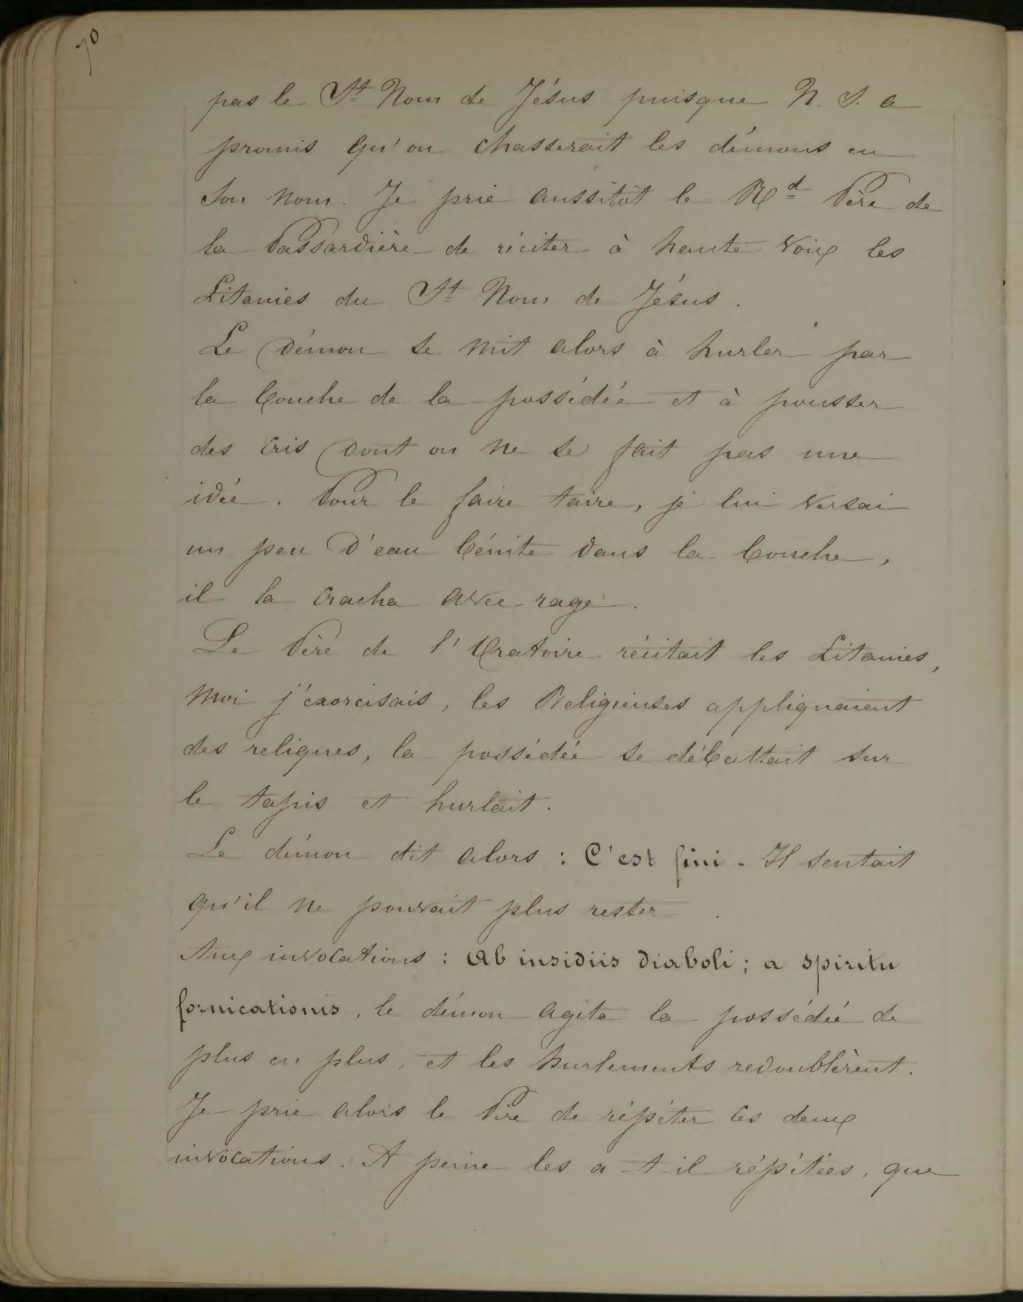 70
pas le St Nom de Jésus puisque N. S. a
promis qu'on chasserait les démons en
son nom. Je prie aussitôt le Rd Père de
la Passardière de réciter à haute voix les
Litanies du St Nom de Jésus.
Le Démon se mit alors à hurler par
la bouche de la possédée et à pousser
des cris dont on ne se fait pas une
idée. Pour le faire taire, je lui versai
un peu d'eau bénite dans la bouche,
il la cracha avec rage.
Le Père de l'Oratoire récitait les Litanies,
moi j'exorcisais, les Religieuses appliquaient
des reliques, la possédée se débattait sur
le tapis et hurlait.
Le démon dit alors : C'est fini. Il sentait
qu'il ne pouvait plus rester.
Aux invocations : Ab insidiis diaboli; a spiritu
fornicationis, le démon agita la possédée de
plus en plus, et les hurlements redoublèrent.
Je prie alors le Père de répéter ces deux
invocations. A peine les a-t-il répétées, que